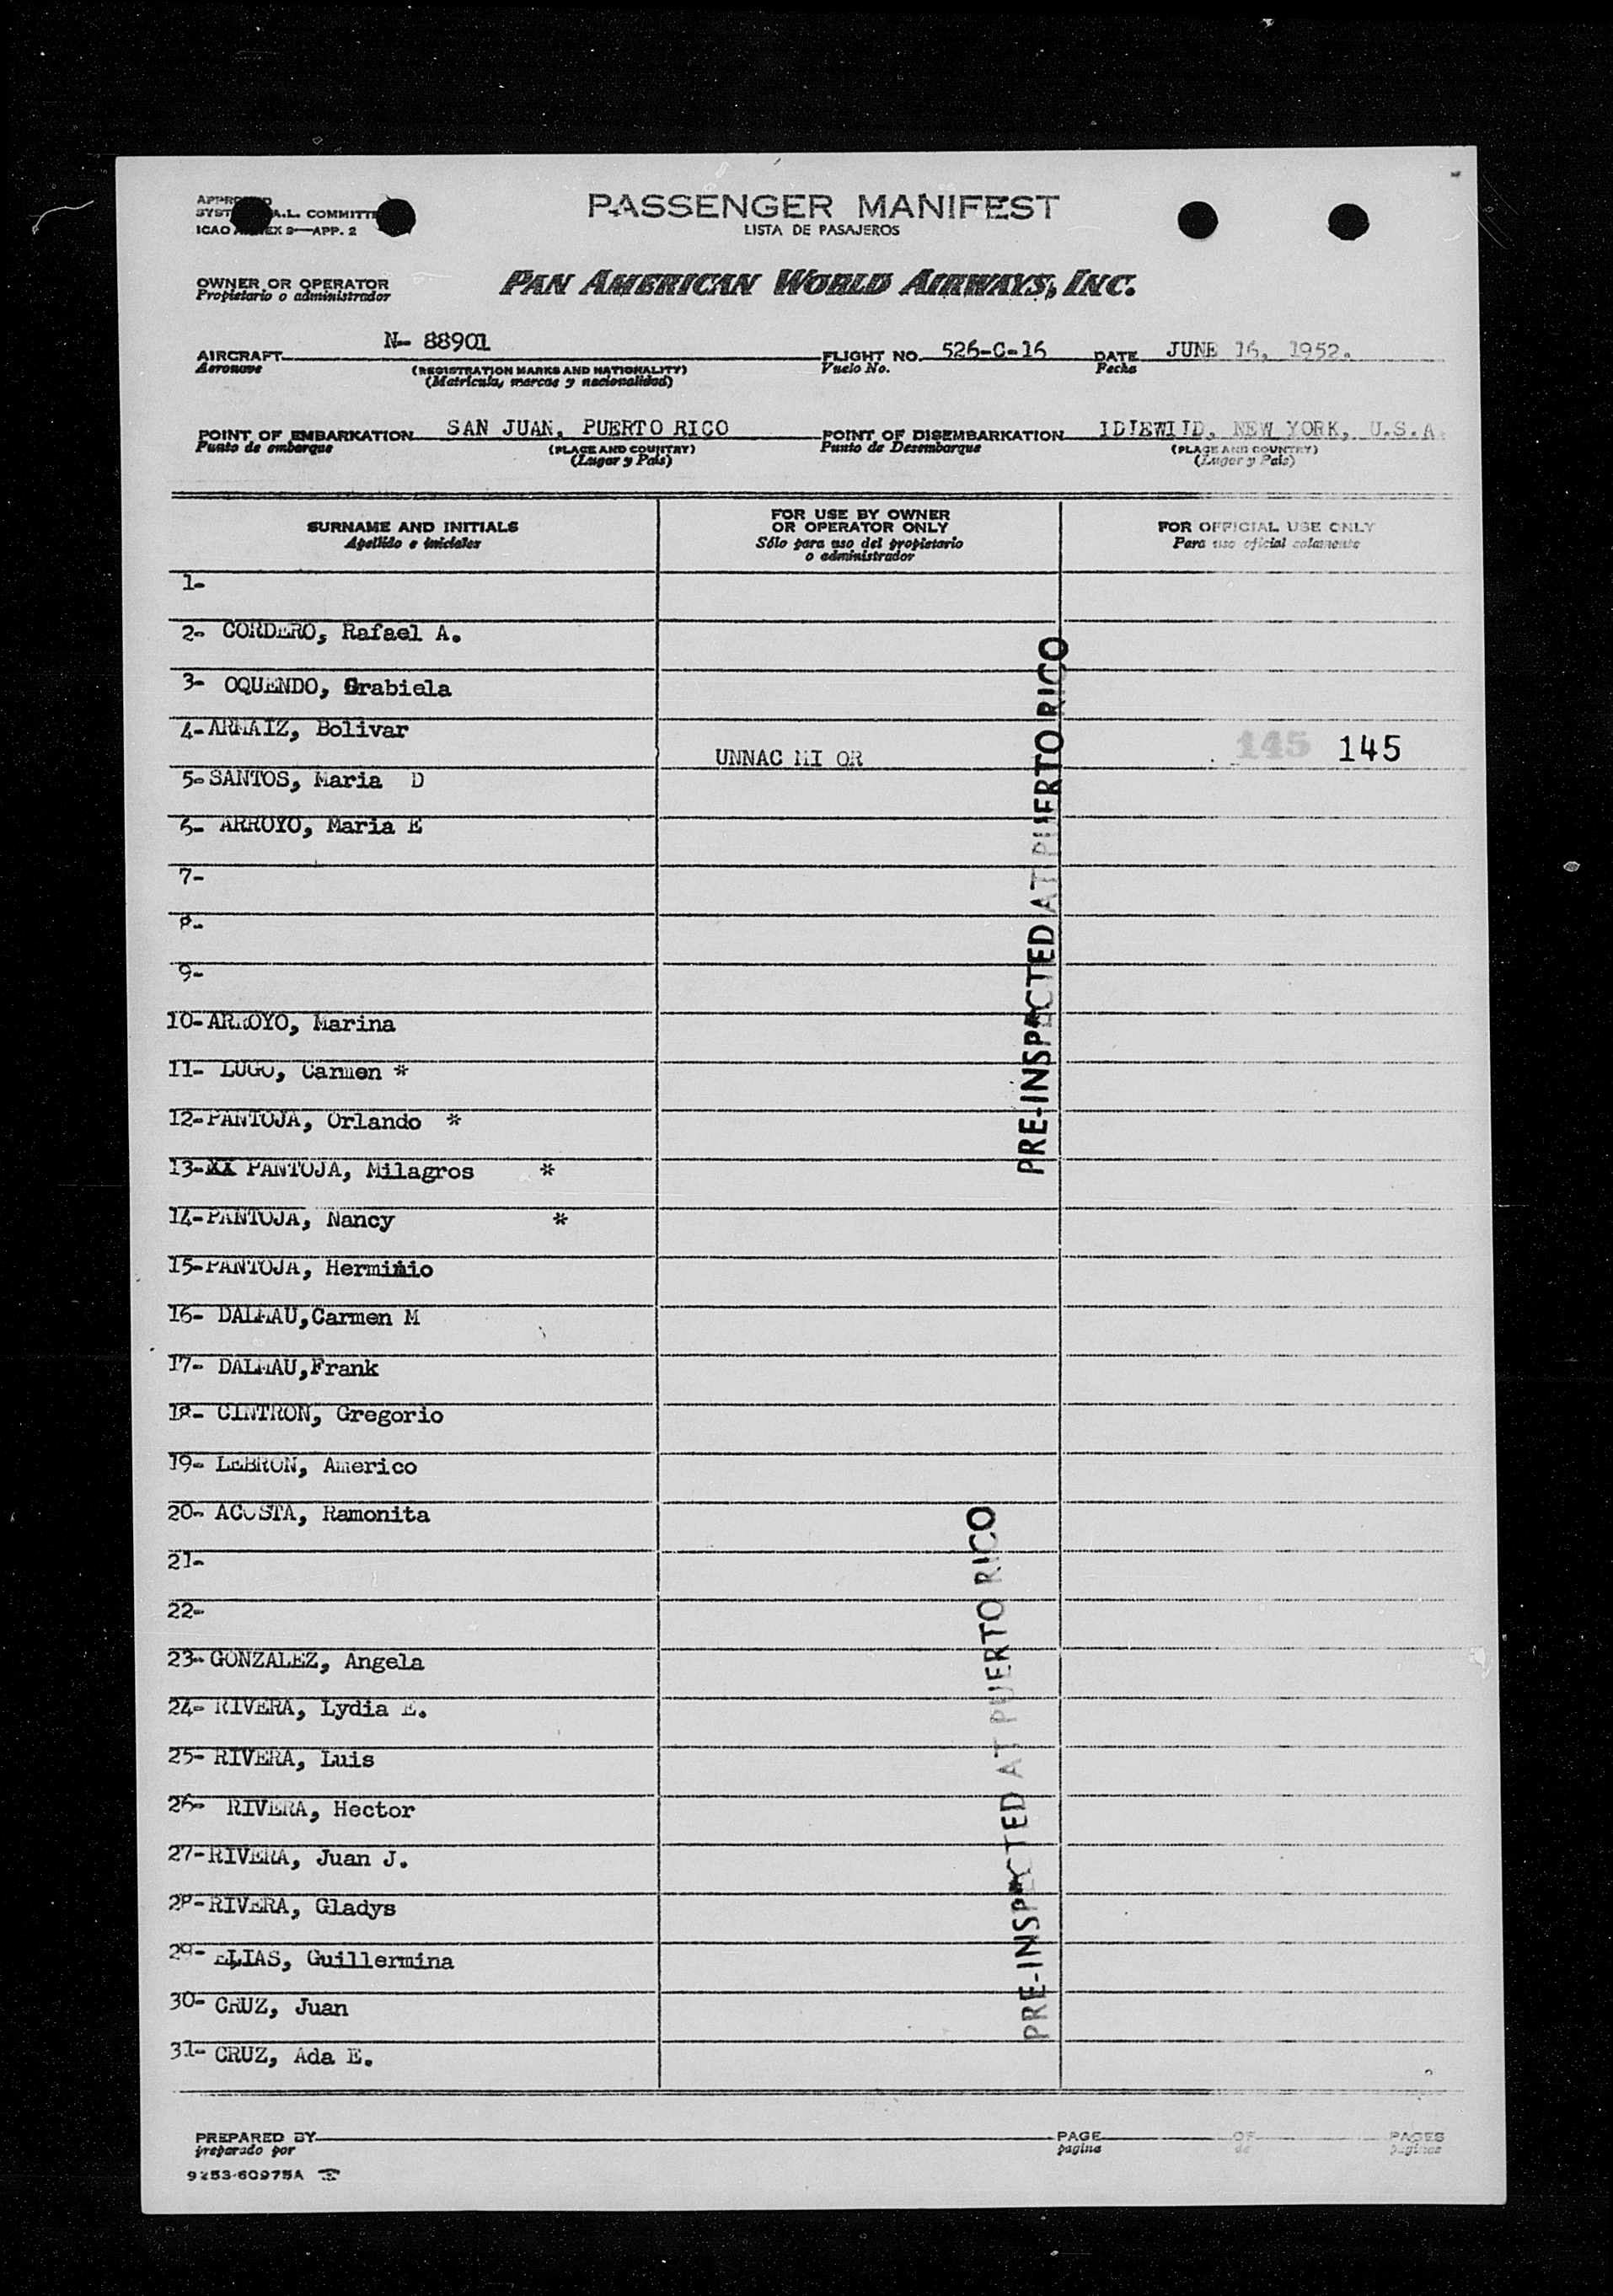 PASSENGER MANIFEST
LISTA DE PASAJEROS
A.L.
ICAO
APP. 2
OWNER OR OPERATOR
Propietario o administrador
PAN AMERICAN WORLD AIRWAYS, INC.
AIRCRAFT N- 88901 FLIGHT NO. 526-C-16 DATE JUNE 16, 1952.
Aeronave (REGISTRATION MARKS AND NATIONALITY) Vuelo No. Fecha
(Matricula, marcas y nacionalidad)
POINT OF EMBARKATION SAN JUAN, PUERTO RICO POINT OF DISEMBARKATION IDLEWILD, NEW YORK, U.S.A.
Punto de embarque (PLACE AND COUNTRY) Punto de Desembarque (PLACE AND COUNTRY)
(Lugar y Pais) (Lugar y Pais)
SURNAME AND INITIALS
Apellido e iniciales
FOR USE BY OWNER
OR OPERATOR ONLY
Sólo para uso del propietario
o administrador
FOR OFFICIAL USE ONLY
Para uso oficial solamente
1-
2- CORDERO, Rafael A.
3- OQUENDO, Grabiela
4- ARNAIZ, Bolivar
UNNAC MI OR 145 145
5- SANTOS, Maria D
6- ARROYO, Maria E
7-
8-
9-
10- ARROYO, Marina
11- LUGO, Carmen *
12- PANTOJA, Orlando *
13- XX PANTOJA, Milagros *
14- PANTOJA, Nancy *
15- PANTOJA, Herminio
16- DALMAU,Carmen M
17- DALMAU,Frank
18- CINTRON, Gregorio
19- LEBRON, Americo
20- ACOSTA, Ramonita
21-
22-
23- GONZALEZ, Angela
24- RIVERA, Lydia E.
25- RIVERA, Luis
26- RIVERA, Hector
27- RIVERA, Juan J.
28- RIVERA, Gladys
29- ELIAS, Guillermina
30- CRUZ, Juan
31- CRUZ, Ada E.
PRE-INSPECTED AT PUERTO RICO
PRE-INSPECTED AT PUERTO RICO
PREPARED BY PAGE OF PAGES
preparado por pagina de paginas